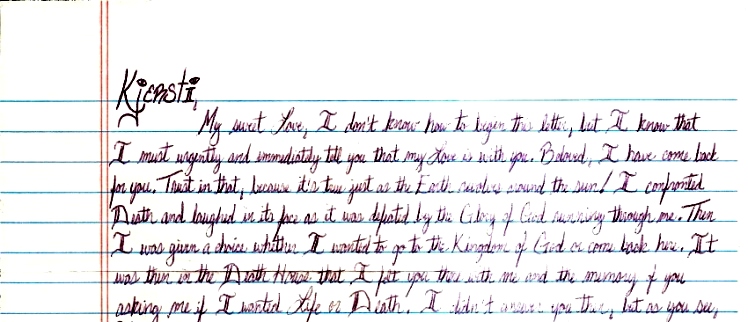 Kjersti,
My sweet Love, I don't know how to begin this letter, but I know that
I must urgently and immediately tell you that my Love is with you. Beloved, I have come back
for you. Trust in that, because it's true just as the Earth revolves around the sun! I confronted
Death and laughed in its face as it was defeated by the Glory of God running through me. Then
I was given a choice whether I wanted to go to the Kingdom of God or come back here. It
was then in the Death House that I felt you there with me and the memory of you
asking me if I wanted Life or Death. I didn't answer you then, but as you see,